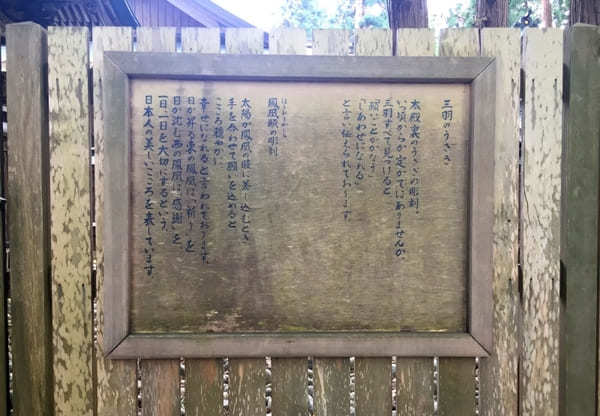 三羽のうさぎ
本殿裏のうさぎの彫刻。
いつ頃からか定かではありませんが、
三羽すべて見つけると
「願いごとがかなう」
「しあわせになれる」
と言い伝えられております。
鳳凰額の彫刻
太陽が鳳凰の眼に差し込むとき
手を合わせて願いを込めると
こころ穏やかに
幸せになれると言われております。
日が昇る東の鳳凰に「祈り」を
日が沈む西の鳳凰に「感謝」を
一日、一日を大切にするという、
日本人の美しいこころを表しています